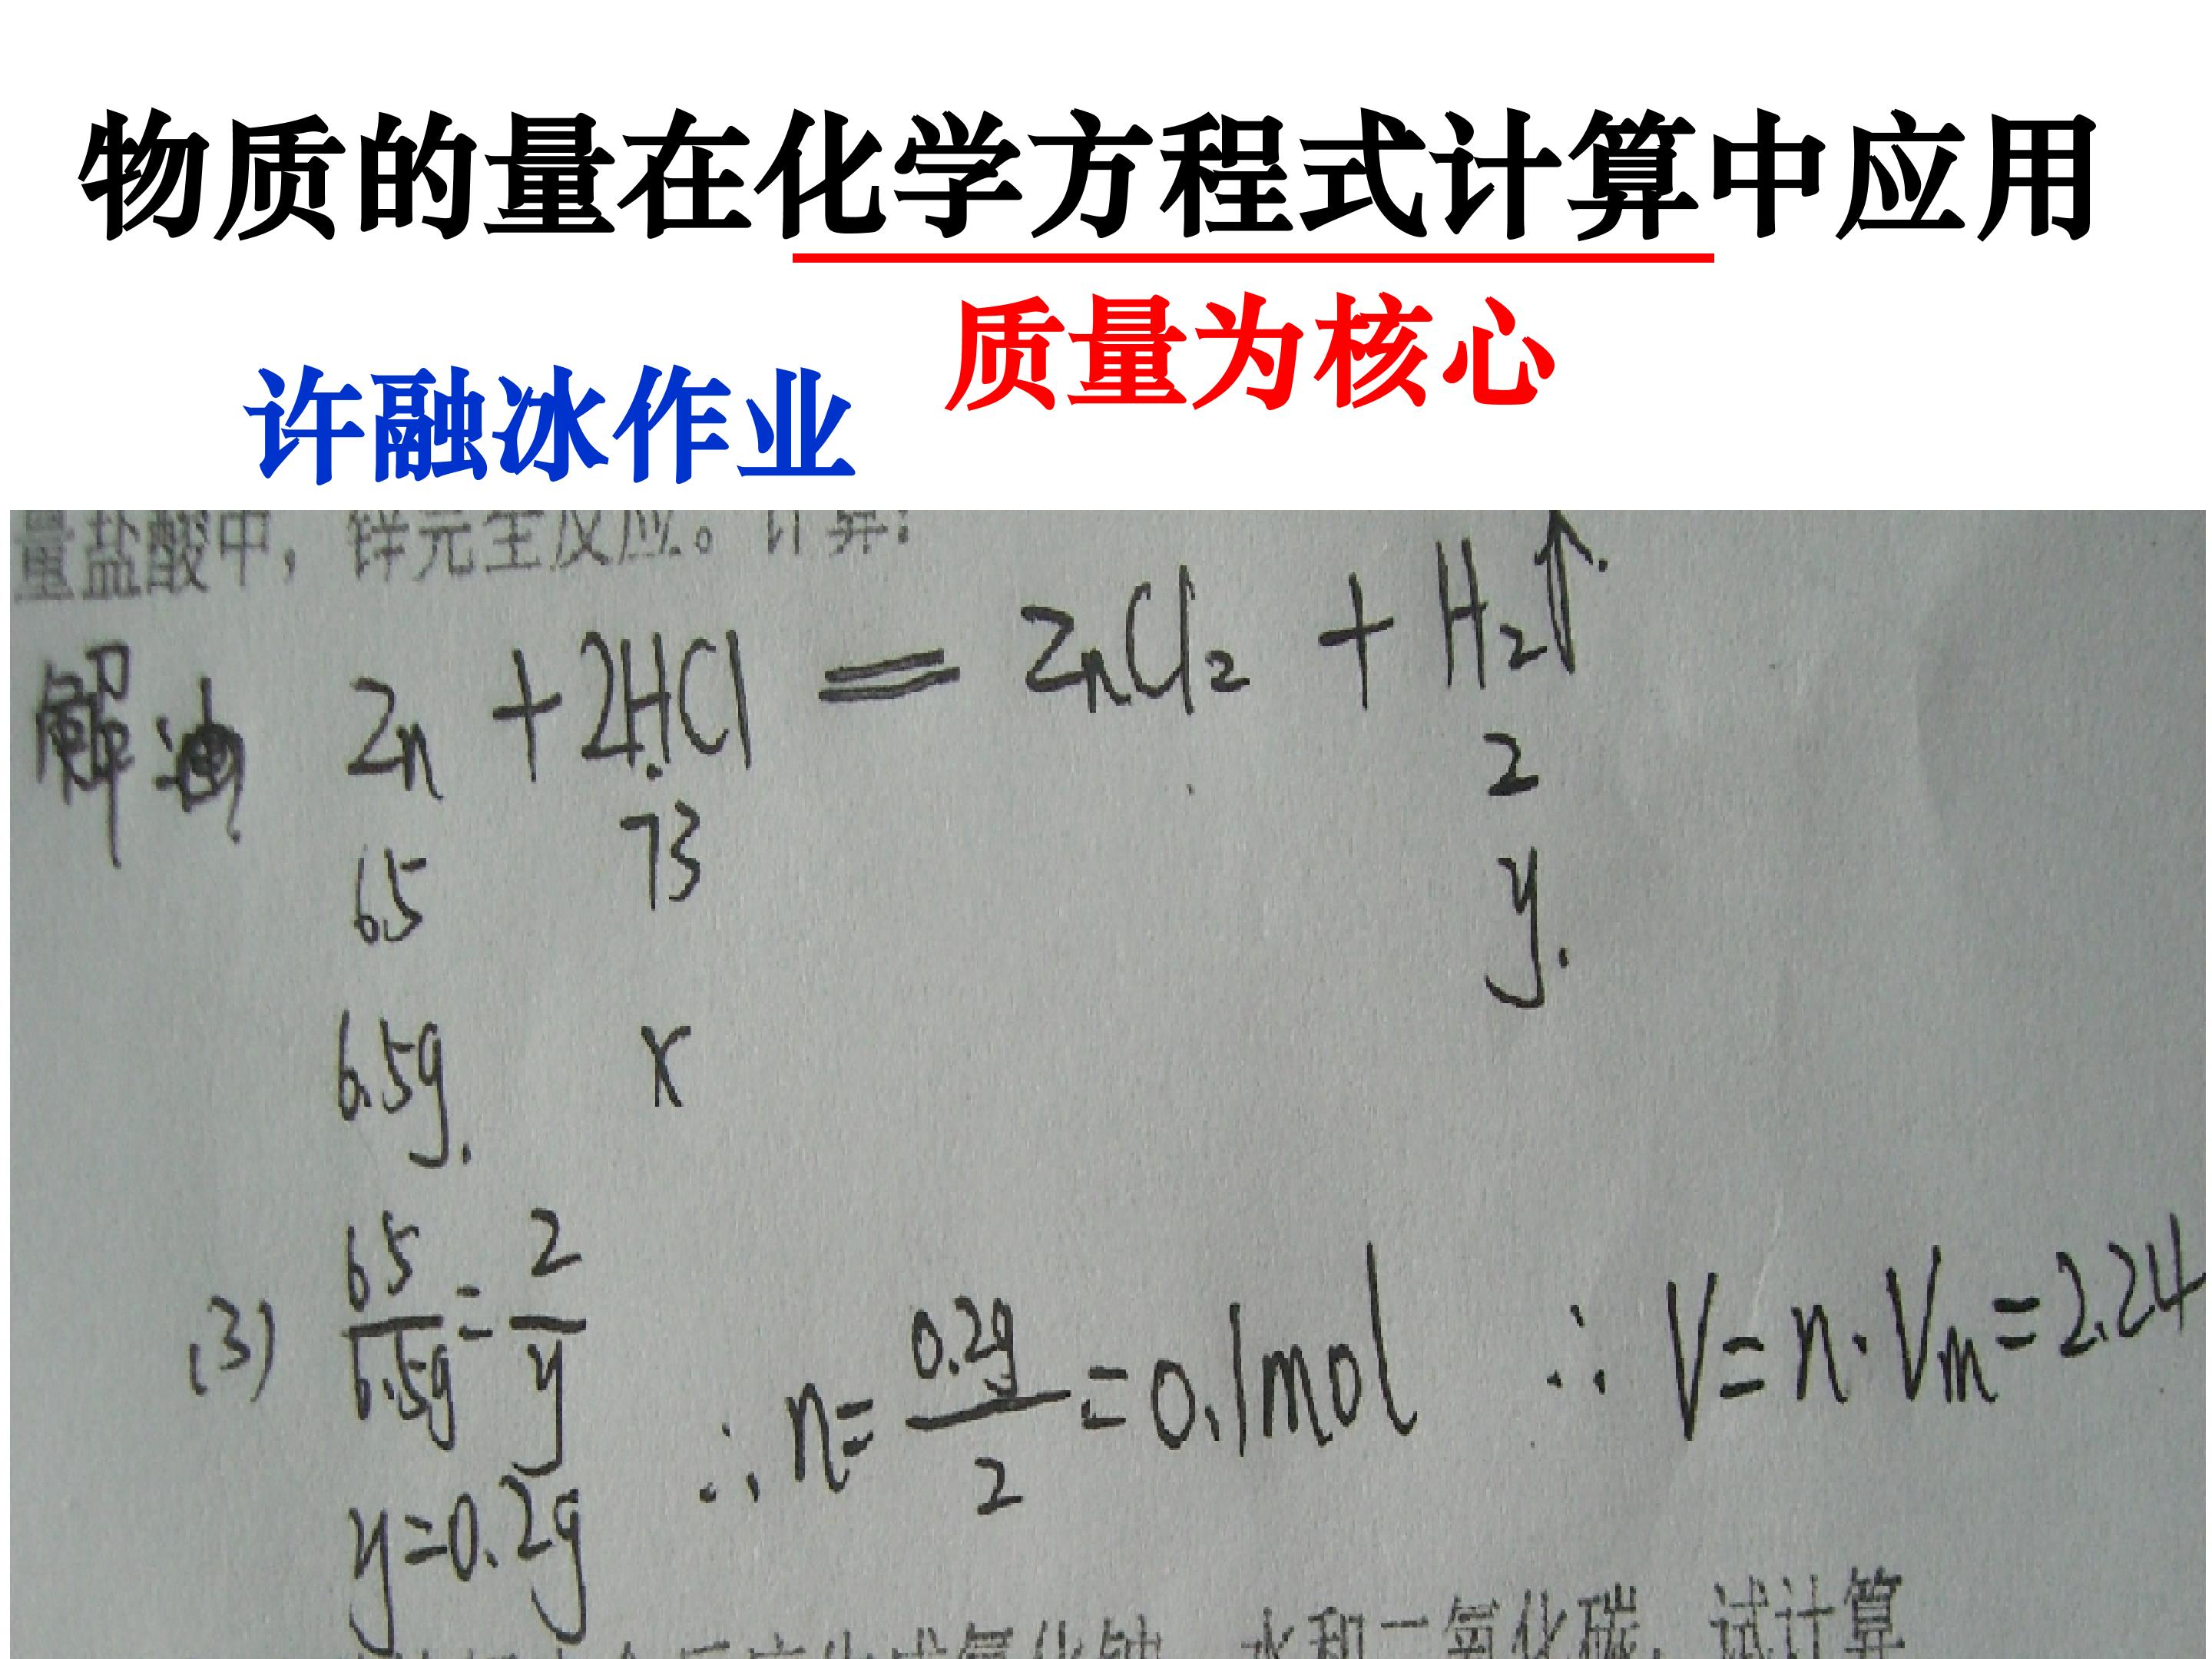 物质的量在化学方程式计算中应用
质量为核心
许融冰作业
量盐酸中，锌完全反应。计算：
解 Zn + 2HCl = ZnCl₂ + H₂↑
65 73 2
6.5g x y
(3) 65/6.5g = 2/y ∴ n = 0.2g/2 = 0.1mol ∴ V = n·Vm = 2.24
y=0.2g
水和二氧化碳，试计算